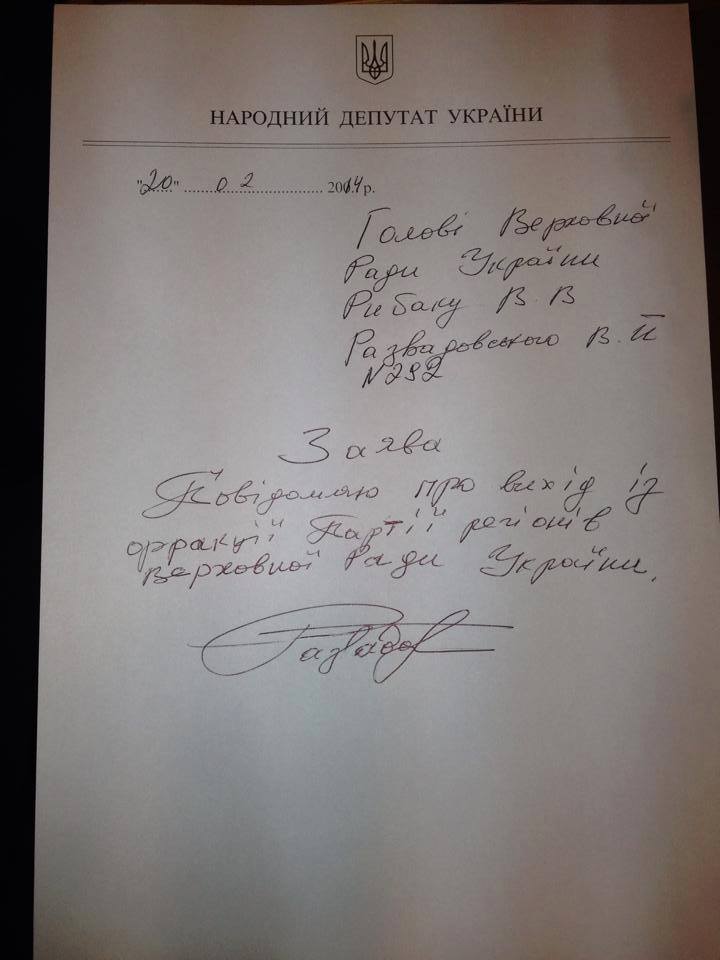 НАРОДНИЙ ДЕПУТАТ УКРАЇНИ
"20" 02 2014 р.
Голові Верховної
Ради України
Рибаку В. В
Развадовського В. Й
N 292
Заява
Повідомляю про вихід із
фракції Партії регіонів
Верховної Ради України.
Развадов